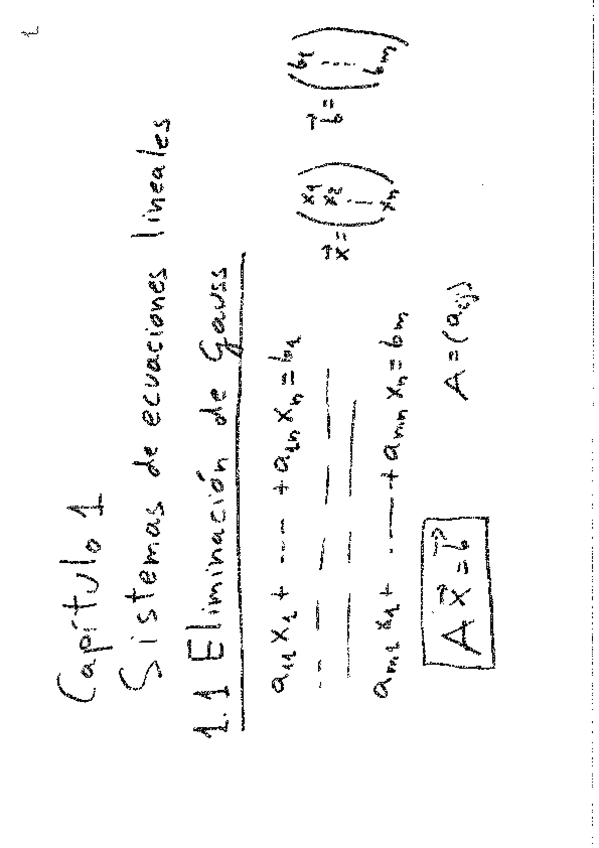 1
Capítulo 1
Sistemas de ecuaciones lineales
1.1 Eliminación de Gauss
a₁₁x₁ + ---- + a₁ₙxₙ = b₁
aₘ₁x₁ + ---- + aₘₙxₙ = bₘ
x⃗ = (x₁ x₂ ⋮ xₙ) b⃗ = (b₁ ⋮ bₘ)
A x⃗ = b⃗ A = (aᵢⱼ)